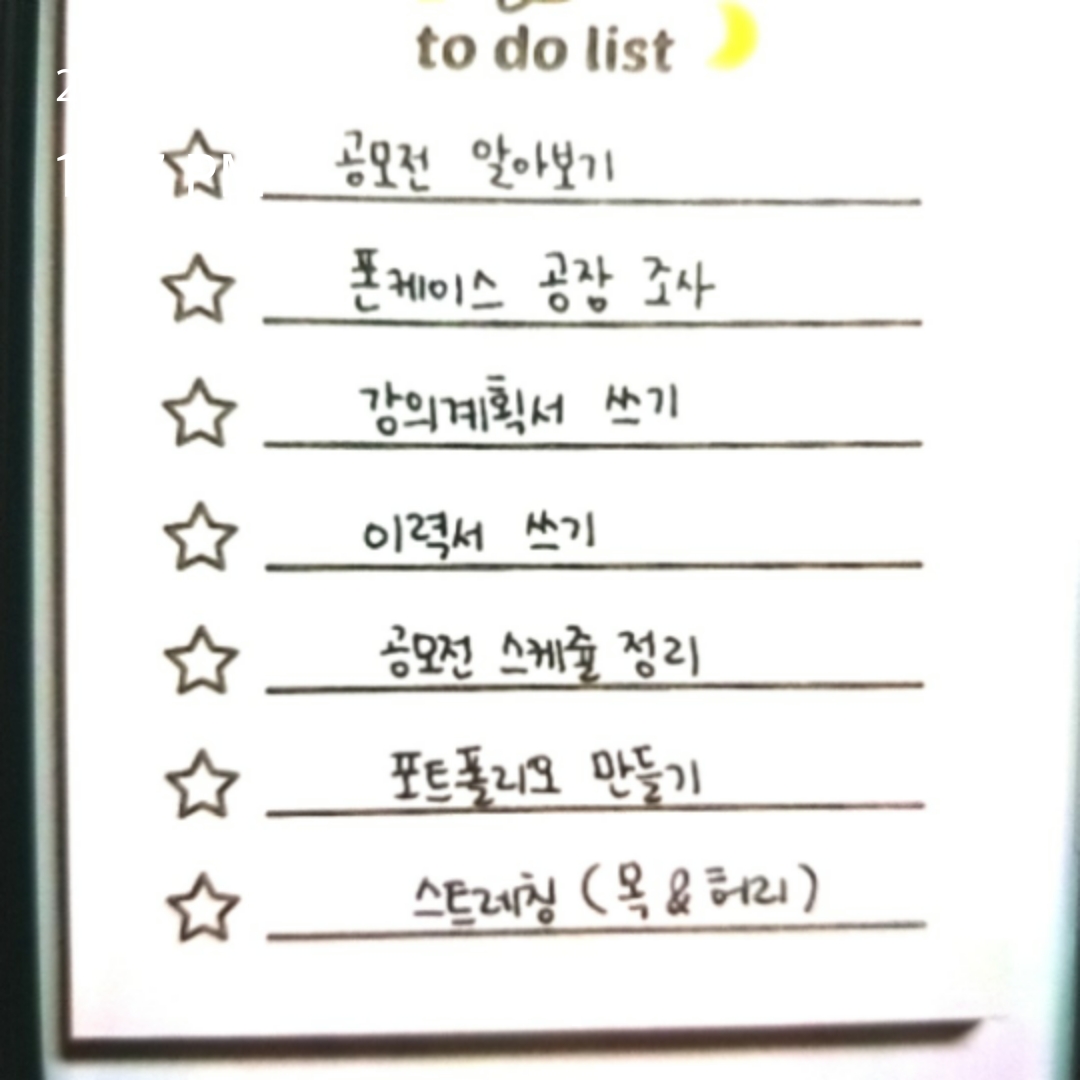 to do list
공모전 알아보기
폰케이스 공장 조사
강의계획서 쓰기
이력서 쓰기
공모전 스케쥴 정리
포트폴리오 만들기
스트레칭 (목 & 허리)